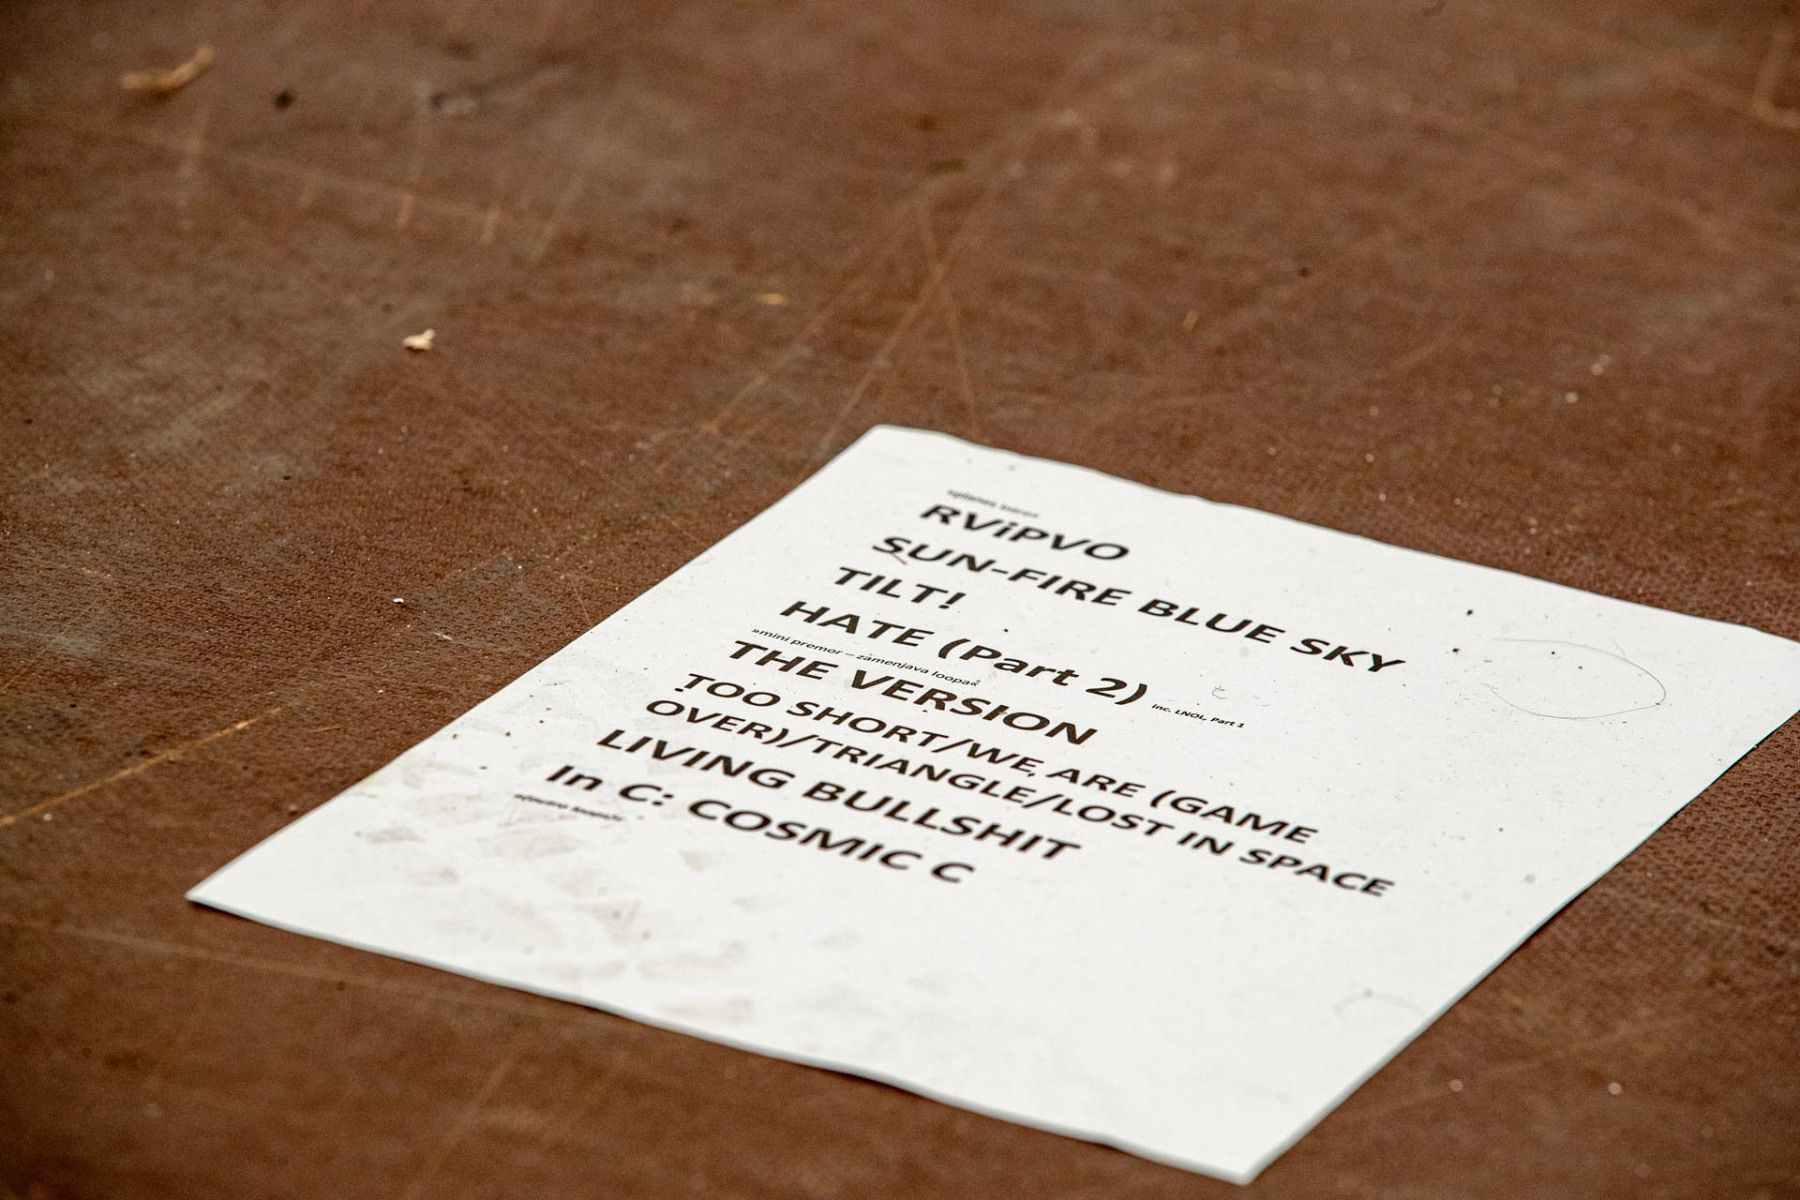 RViPVO
SUN-FIRE BLUE SKY
TILT!
HATE (Part 2) inc. LNOL, Part 1
»mini premor – zamenjava loopa«
THE VERSION
TOO SHORT/WE ARE (GAME
OVER)/TRIANGLE/LOST IN SPACE
LIVING BULLSHIT
In C: COSMIC C